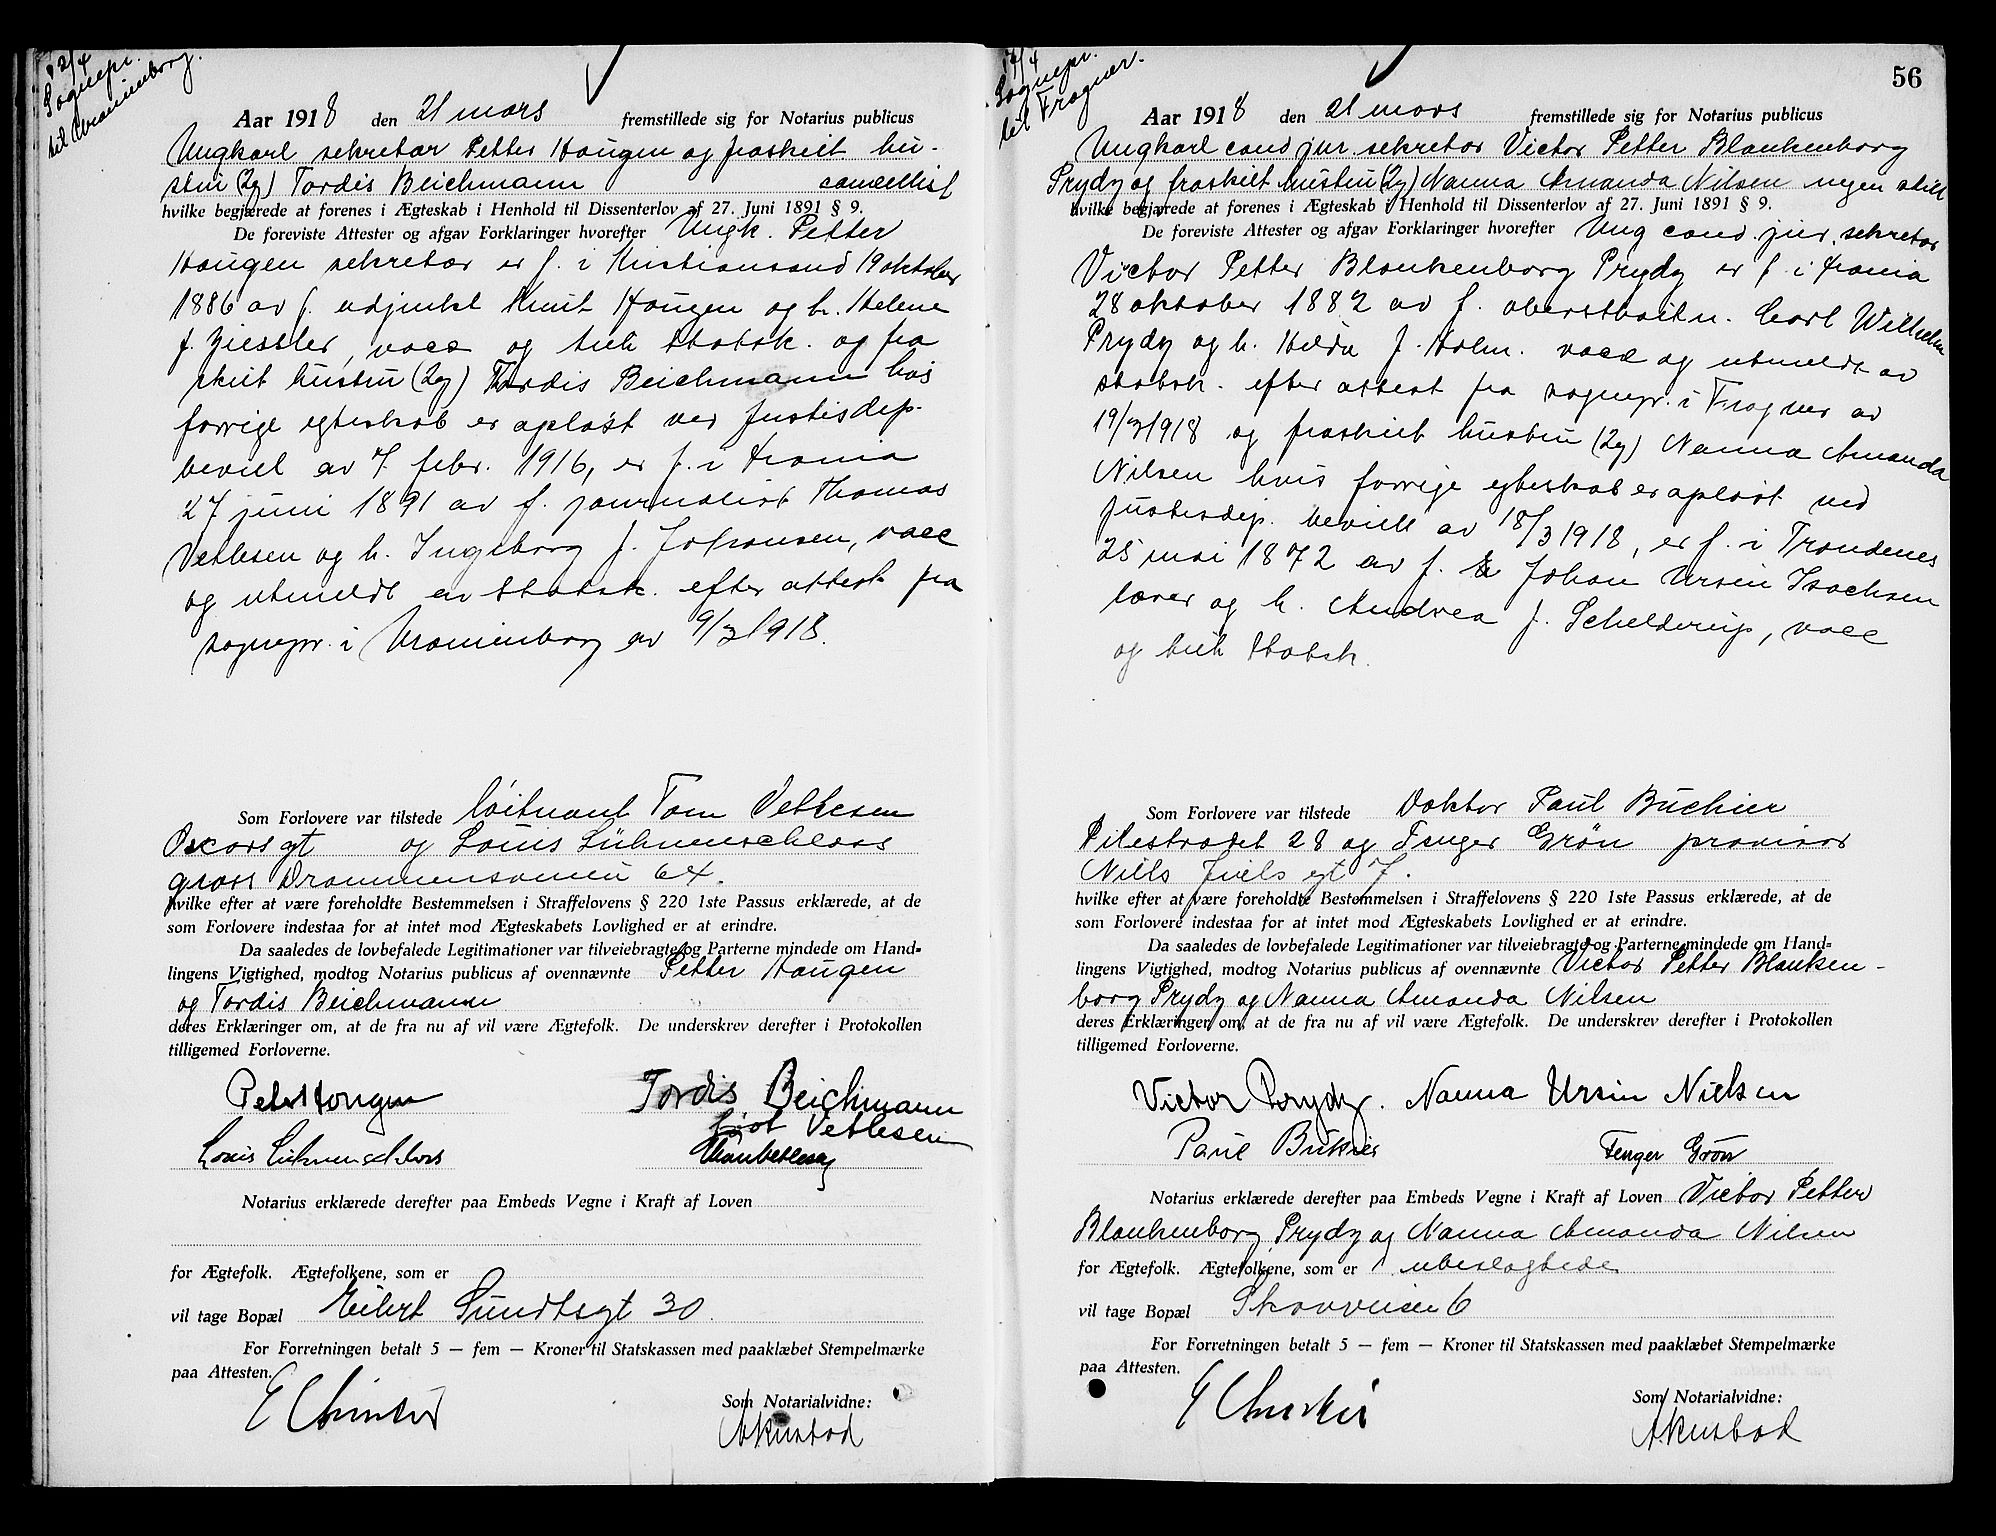 12/4
Sognepr.
til Uranienborg.
Aar 1918 den 21 mars fremstillede sig for Notarius publicus
Ungkarl sekretær Petter Haugen og fraskilt hu-
stru (2g) Tordis Beichmann cancellist
hvilke begjærede at forenes i Ægteskab i Henhold til Dissenterlov af 27. Juni 1891 § 9.
De foreviste Attester og afgav Forklaringer hvorefter Ungk. Petter
Haugen sekretær er f. i Kristiansand 19 oktober
1886 av f. adjunkt Knut Haugen og h. Helene
f. Ziessler, vacc og tilh statsk. og fra
skilt hustru (2g) Tordis Beichmann hvis
forrige egteskab er opløst ved Justisdep.
bevill av 7. febr. 1916, er f. i Krania
27 juni 1891 av f. journalist Thomas
Vetlesen og h. Ingeborg f. Johansen, vacc
og utmeldt av statsk. efter attest fra
sognepr. i Uranienborg av 9/3 1918.
Som Forlovere var tilstede løitnant Tom Vetlesen
Oscars gt og Louis Lühnenschloss
gross Drammensveien 64.
hvilke efter at være foreholdte Bestemmelsen i Straffelovens § 220 1ste Passus erklærede, at de
som Forlovere indestaa for at intet mod Ægteskabets Lovlighed er at erindre.
Da saaledes de lovbefalede Legitimationer var tilveiebragte og Parterne mindede om Hand-
lingens Vigtighed, modtog Notarius publicus af ovennævnte Petter Haugen
og Tordis Beichmann
deres Erklæringer om, at de fra nu af vil være Ægtefolk. De underskrev derefter i Protokollen
tilligemed Forloverne.
Petter Haugen Tordis Beichmann
født Vetlesen
Louis Lühnenschloss Tom Vetlesen
Notarius erklærede derefter paa Embeds Vegne i Kraft af Loven
for Ægtefolk. Ægtefolkene, som er
vil tage Bopæl Eilert Sundtsgt 30.
For Forretningen betalt 5 — fem — Kroner til Statskassen med paaklæbet Stempelmærke
paa Attesten.
Som Notarialvidne:
AKnstad
56
17/4
Sognepr.
til Frogner.
Aar 1918 den 21 mars fremstillede sig for Notarius publicus
Ungkarl cand jur. sekretær Victor Petter Blankenborg
Prydz og fraskilt hustru (2g) Nanna Amanda Nilsen ingen still
hvilke begjærede at forenes i Ægteskab i Henhold til Dissenterlov af 27. Juni 1891 § 9.
De foreviste Attester og afgav Forklaringer hvorefter Ung cand. jur. sekretær
Victor Petter Blankenborg Prydz er f. i Krania
28 oktober 1882 av f. oberstløitn. Carl Wilhelm
Prydz og h. Hilda f. Holm. vacc og utmeldt av
statsk. efter attest fra sognepr. i Frogner av
19/3 1918 og fraskilt hustru (2g) Nanna Amanda
Nilsen hvis forrige egteskab er opløst ved
justisdep. bevill av 18/3 1918, er f. i Trondenes
25 mai 1872 av f. Johan Ursin Isachsen
lærer og h. Andrea f. Schelderup, vacc
og tilh statsk.
Som Forlovere var tilstede Doktor Paul Buckier
Pilestrædet 28 og Fenger Grøn provisor
Niels Juels gt 7.
hvilke efter at være foreholdte Bestemmelsen i Straffelovens § 220 1ste Passus erklærede, at de
som Forlovere indestaa for at intet mod Ægteskabets Lovlighed er at erindre.
Da saaledes de lovbefalede Legitimationer var tilveiebragte og Parterne mindede om Hand-
lingens Vigtighed, modtog Notarius publicus af ovennævnte Victor Petter Blanken-
borg Prydz og Nanna Amanda Nilsen
deres Erklæringer om, at de fra nu af vil være Ægtefolk. De underskrev derefter i Protokollen
tilligemed Forloverne.
Victor Prydz. Nanna Ursin Nielsen
Paul Fenger Grøn
Notarius erklærede derefter paa Embeds Vegne i Kraft af Loven Victor Petter
Blankenborg Prydz og Nanna Amanda Nilsen
for Ægtefolk. Ægtefolkene, som er ubeslægtede
vil tage Bopæl Skovveien 6
For Forretningen betalt 5 — fem — Kroner til Statskassen med paaklæbet Stempelmærke
paa Attesten.
Som Notarialvidne:
AKnstad